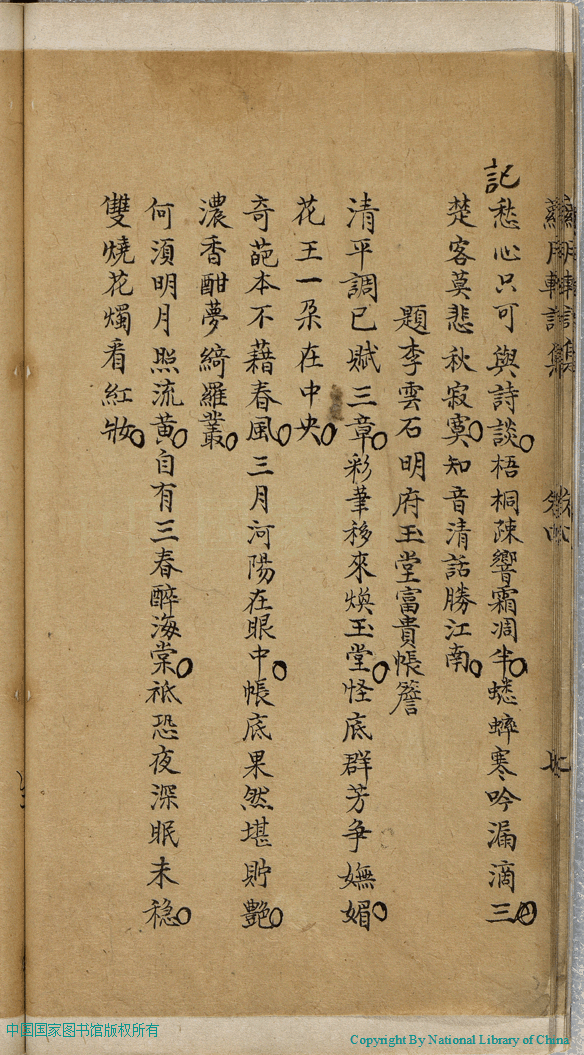 記愁心只可與詩談。梧桐疎響霜凋半。蟋蟀寒吟漏滴三。
楚客莫悲秋寂寞。知音清話勝江南。
題李雲石明府玉堂富貴帳簷
清平調已賦三章。彩筆移來煥玉堂。怪底群芳爭嫵媚。
花王一朶在中央。
奇葩本不藉春風。三月河陽在眼中。帳底果然堪貯艷。
濃香酣夢綺羅叢。
何須明月照流黃。自有三春醉海棠。祗恐夜深眠未穩。
雙燒花燭看紅妝。
中国国家图书馆版权所有
Copyright By National Library of China